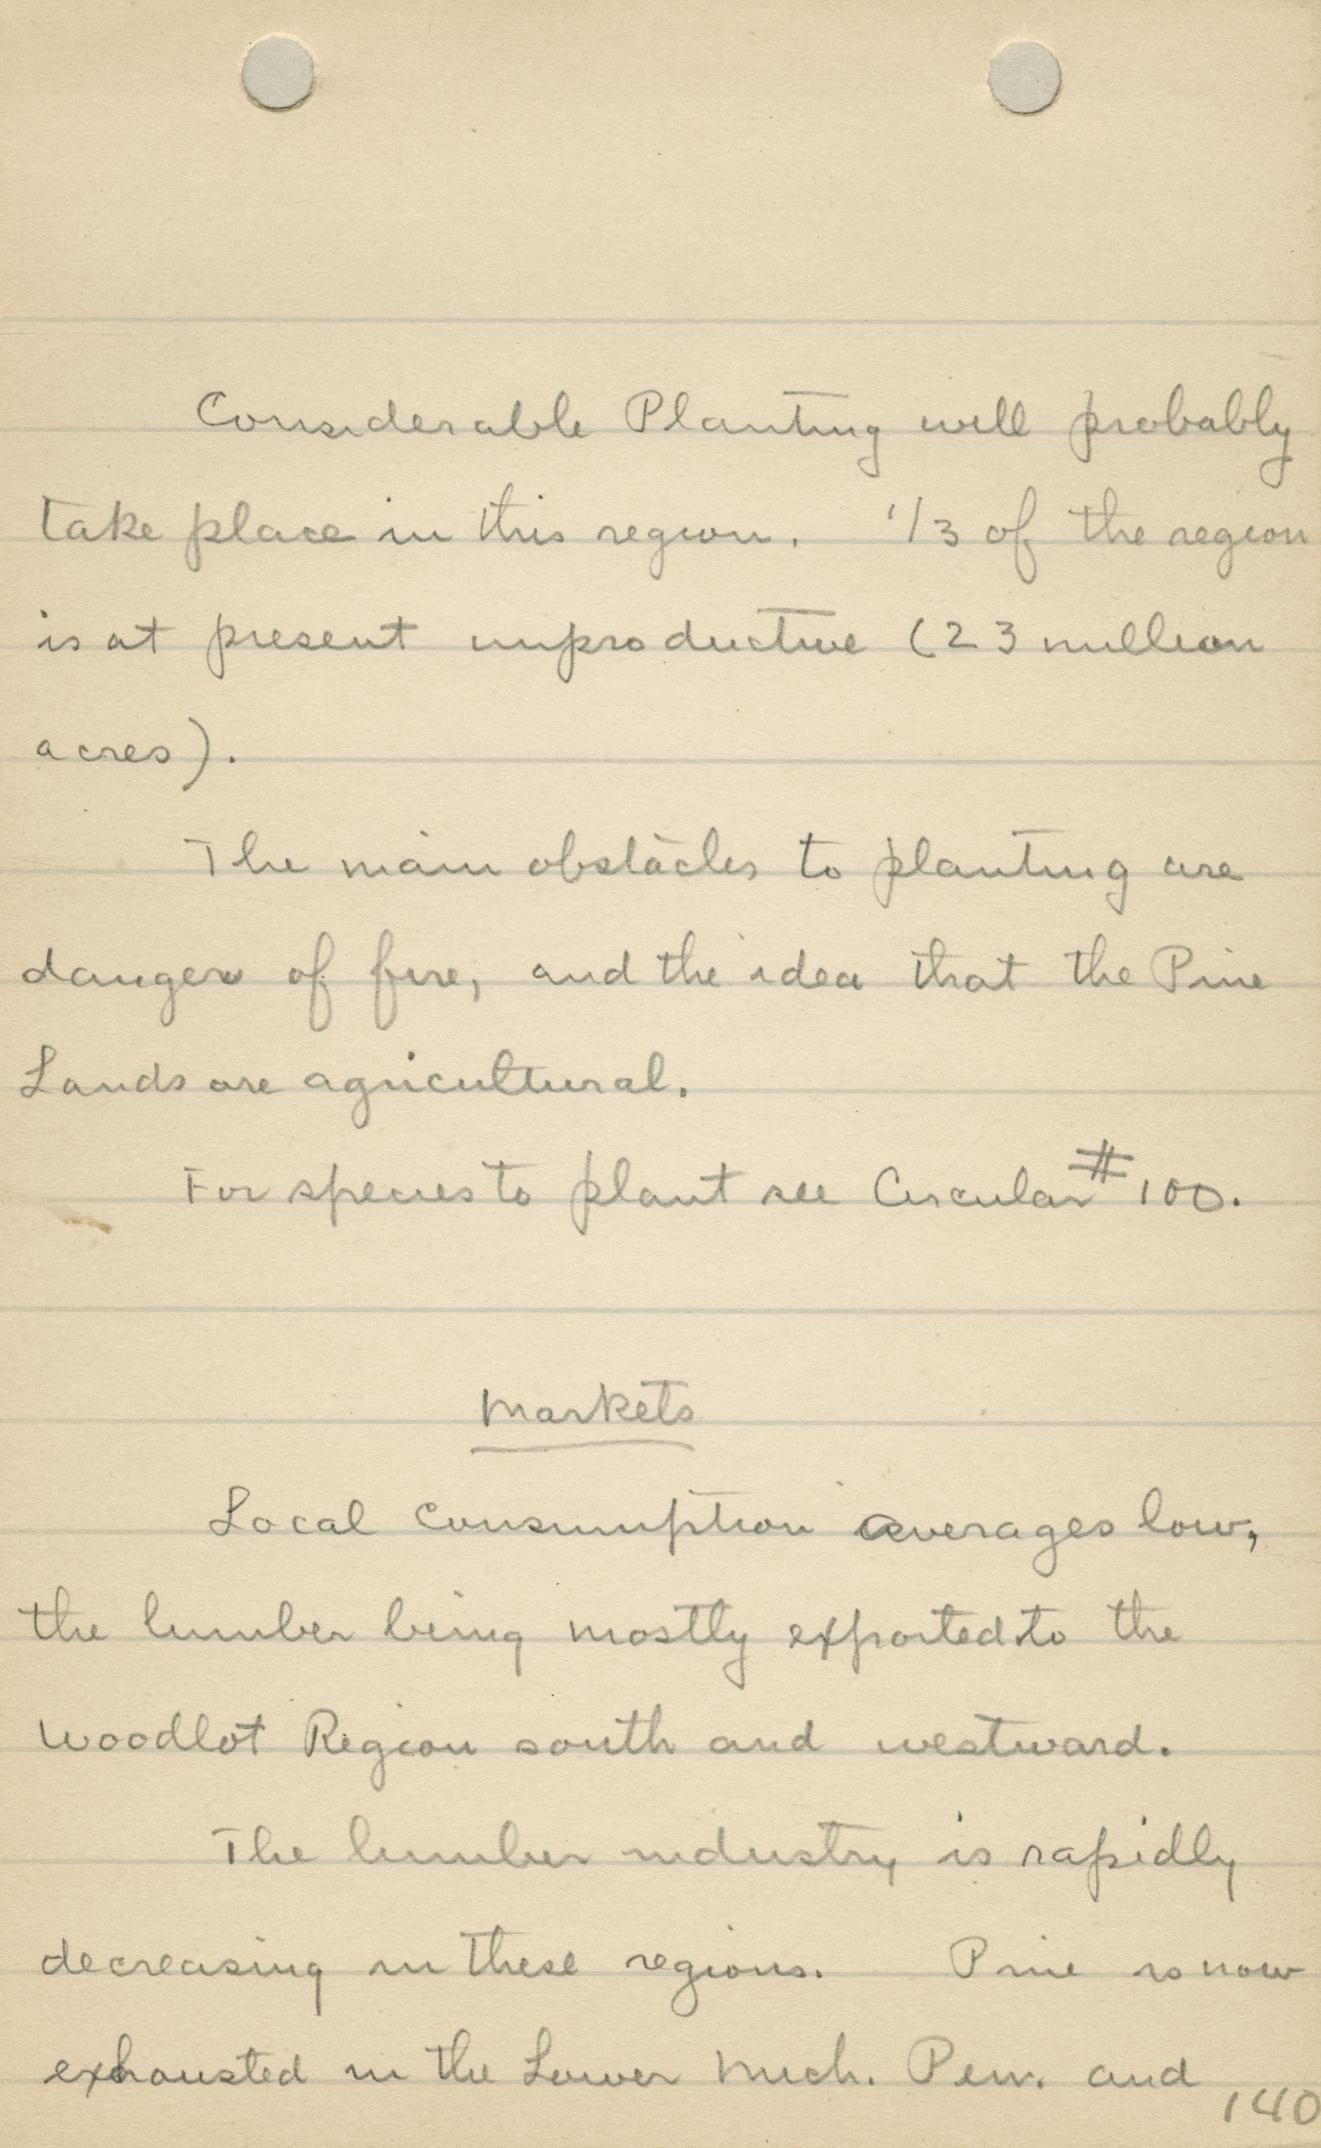 Considerable Planting will probably
take place in this region. 1/3 of the region
is at present unproductive (23 million
acres).
The main obstacles to planting are
danger of fire, and the idea that the Pine
Lands are agricultural.
For species to plant see Circular # 100.
Markets
Local consumption averages low,
the lumber being mostly exported to the
Woodlot Region south and westward.
The lumber industry is rapidly
decreasing in these regions. Pine is now
exhausted in the Lower Mich. Pen. and
140